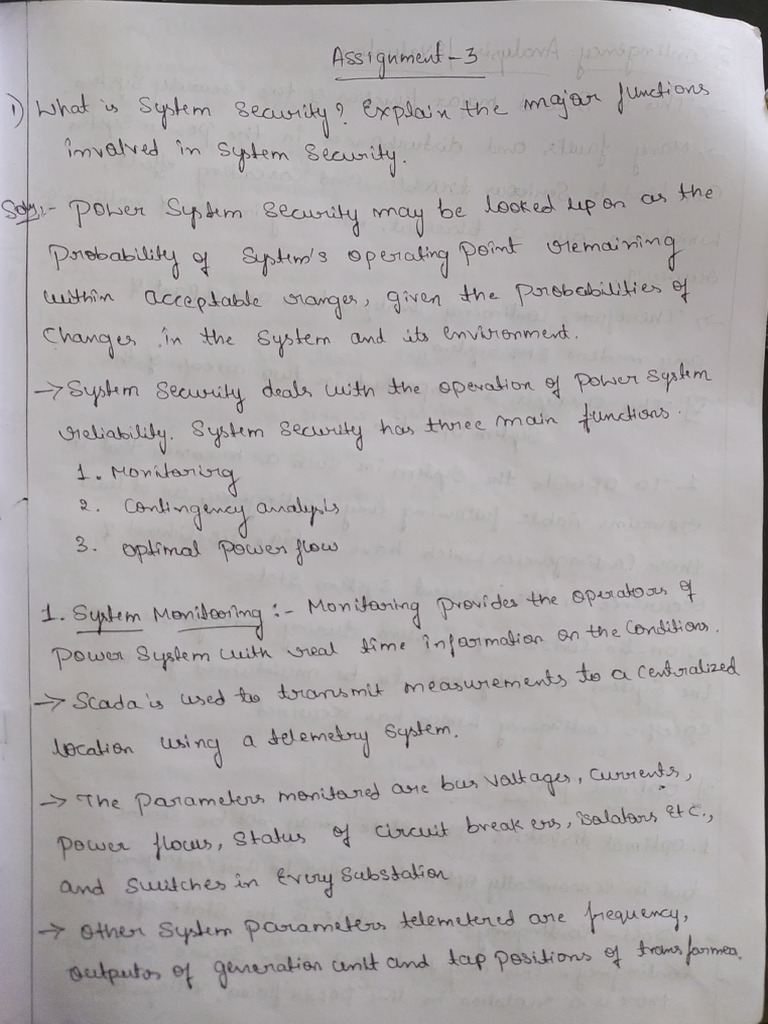 Assignment-3
1) What is System Security? Explain the major functions
involved in System Security.
Soln:- Power System Security may be looked up on as the
Probability of System's operating point remaining
within acceptable ranges, given the probabilities of
Changes in the system and its environment.
→ System Security deals with the operation of power system
reliability. System Security has three main functions.
1. Monitoring
2. Contingency analysis
3. optimal power flow
1. System Monitoring :- Monitoring provides the operators of
power System with real time information on the Conditions.
→ Scada is used to transmit measurements to a centralized
location using a telemetry System.
→ The parameters monitored are bus voltages, currents,
power flows, Status of circuit breakers, isolators Etc.,
and Switches in Every Substation
→ other System parameters telemetered are frequency,
outputos of generation unit and tap positions of transformer.